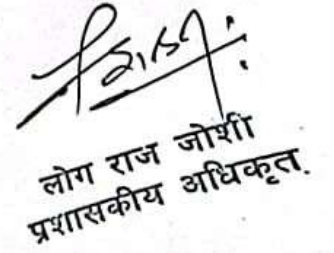 लोग राज जोशी
प्रशासकीय अधिकृत.